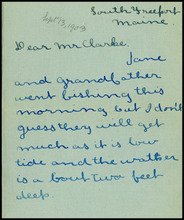 Sept 13, 1909
South Freeport
Maine.
Dear Mr Clarke,
Jane
and grandfather
went fishing this
morning but I don't
guess they will get
much as it is low
tide and the wather
is a bout two feet
deep.